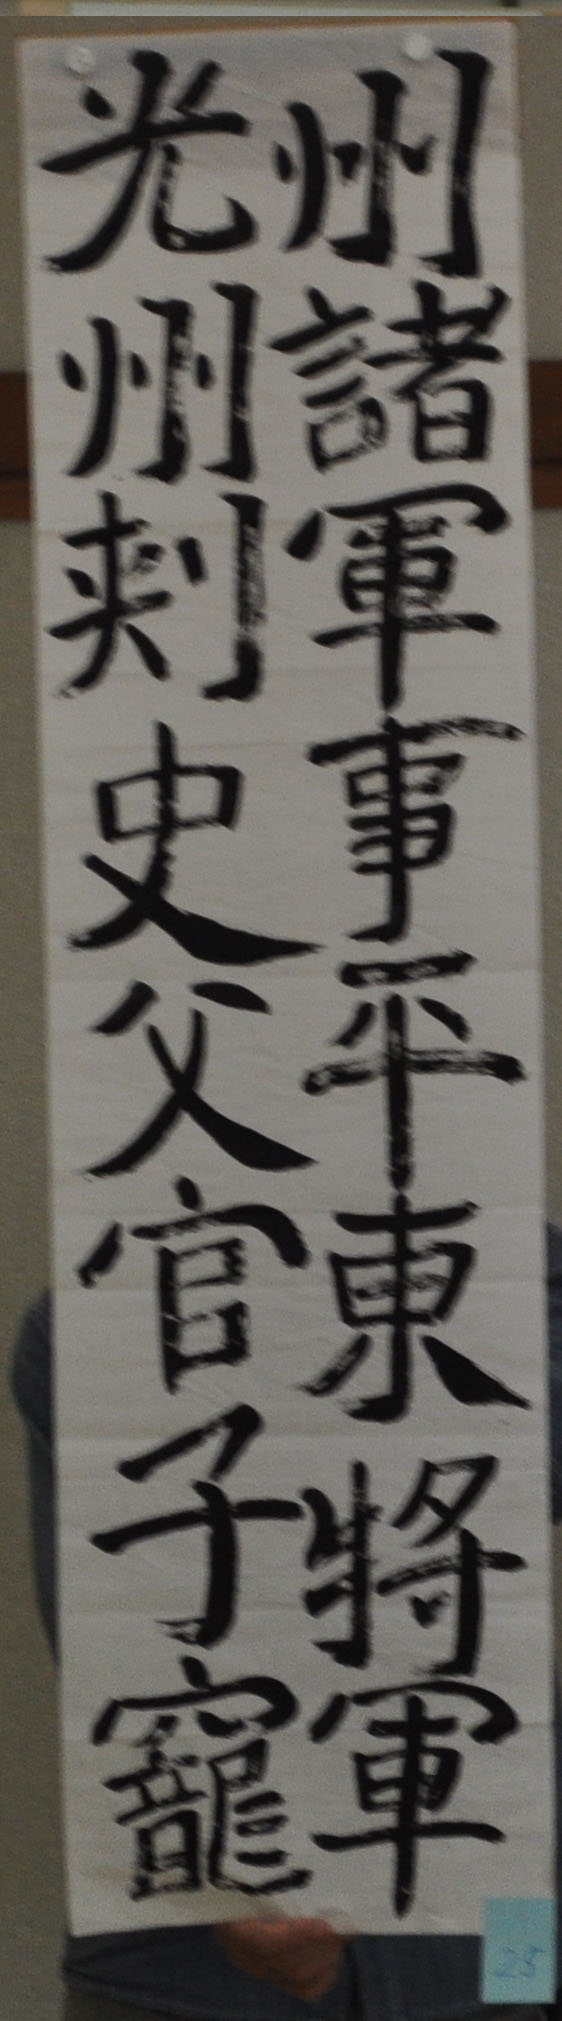 州諸軍事平東將軍
光州刺史父官子寵
25